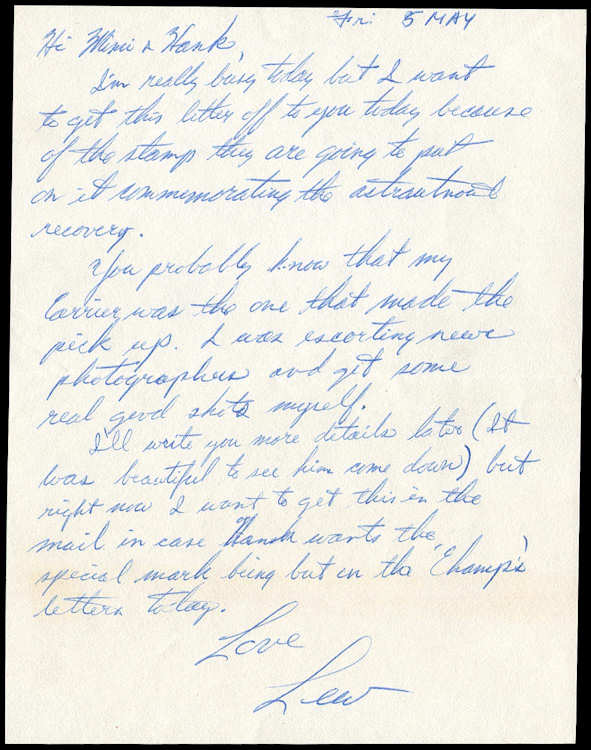 Fri 5 MAY
Hi Mimi & Hank,
I'm really busy today but I want
to get this letter off to you today because
of the stamp they are going to put
on it commemorating the astrautnout
recovery.
You probably know that my
Carrier was the one that made the
pick up. I was escorting news
photographers and got some
real good shots myself.
I'll write you more details later (It
was beautiful to see him come down) but
right now I want to get this in the
mail in case Hank wants the
special mark being but on the "Champ's"
letters today.
Love
Lew